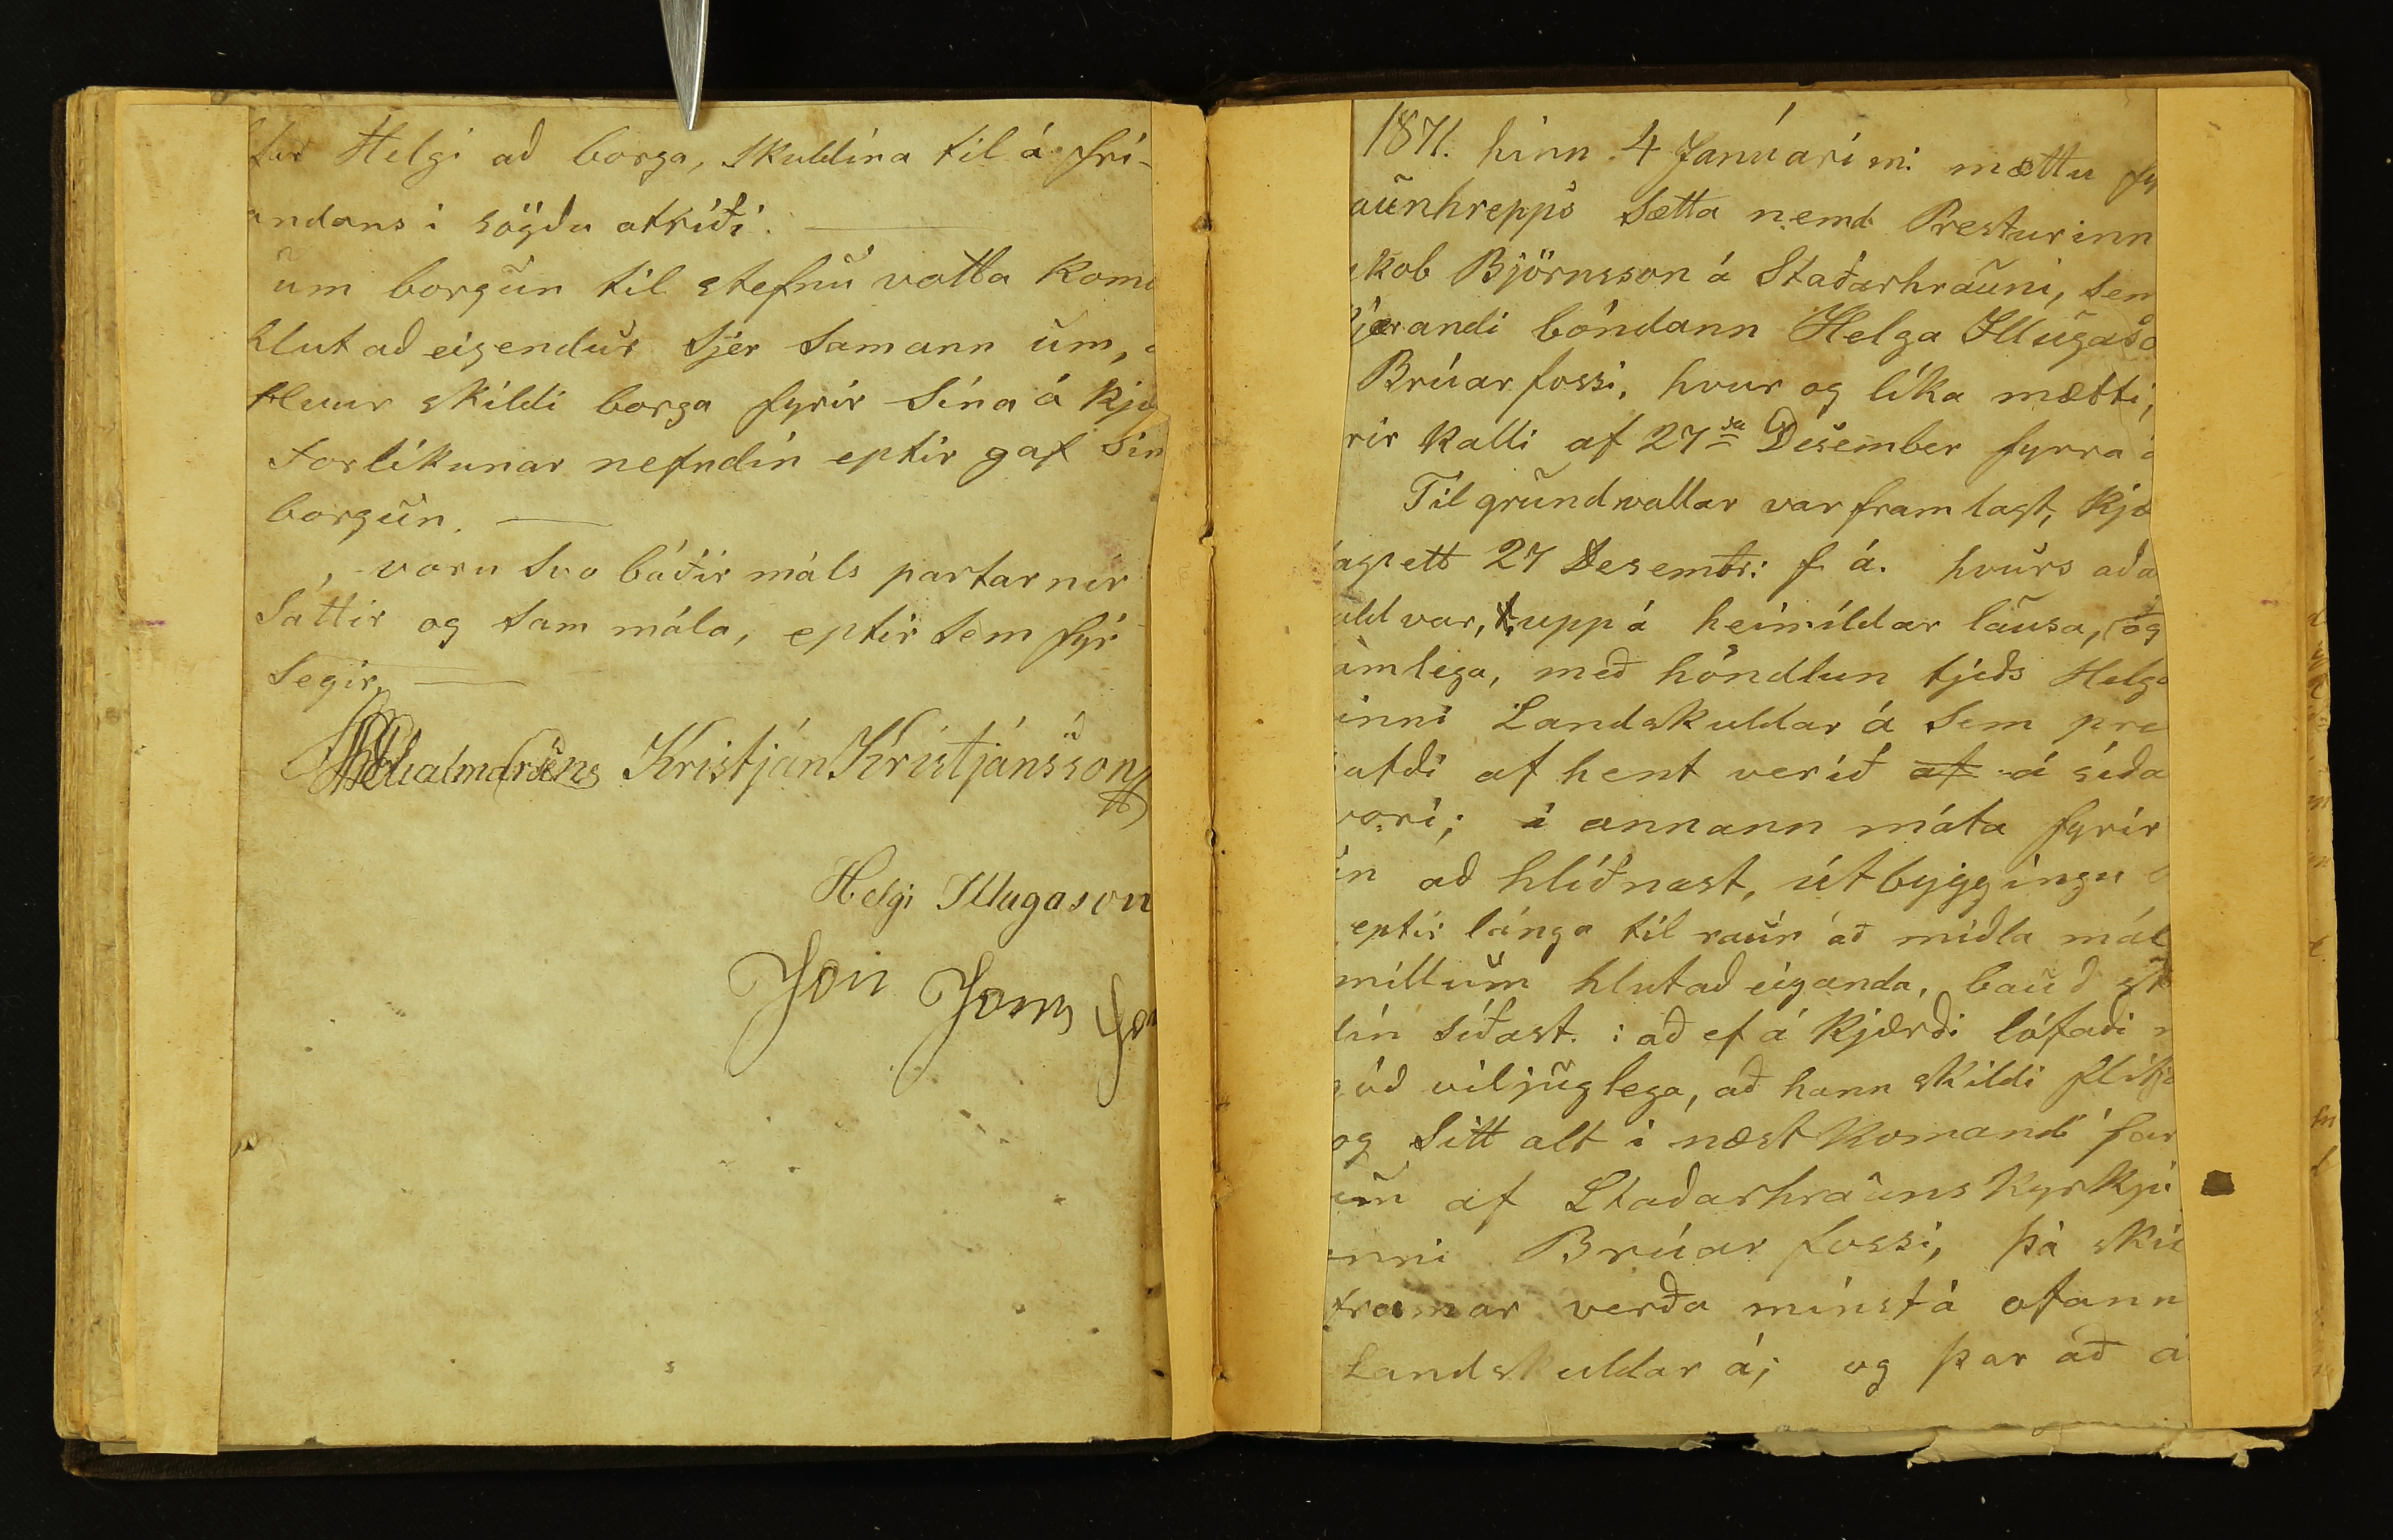 tur Helgi að borga, skuldina til á frí-
andans i sögðu atriði.
um borgun til stefnu votta kom
hlut að eigendur sjer samann um,
hvur skildi borga fyrir sina á kjæ
Forlikunar nefndin eptir gaf sin
borgun.
voru svo báðir máls partarner
sáttir og sam mála, eptir sem fyr
segir.
Kristján Kristjánsson
Helgi Illugason
Jón Jóns
1871. hinn 4 Januari m: mættu fy
aunhrepps sætta nemd Presturinn
kob Björnsson á Staðarhrauni, sem
jærandi bóndann Helga Illugaso
Brúarfossi, hvur og lika mætti,
rir kalli af 27da Desember fyrra á
Til grundvallar var framlagt, kjæ
agsett 27 Desembr: f. á. hvurs aða
ald var, uppá heimildar lausa, og
amlega, með höndlun tjeðs Helga
inni Landskuldar á sem pre
afði af hent verið af á siða
vori; i annann máta fyrir
in að hlíðnast, útbyggingu
eptir lánga til raun að miðla mál
millum hlutað eiganda, bauð st
din siðast. : að ef á kjærði lófaði
óð viljuglega, að hann skildi flitja
og sitt alt i næst komandi far
um af Staðarhrauns kyrkju
nni Brúarfossi, þá skil
framar verða minst á ofann
Landskuldar á; og þar að á